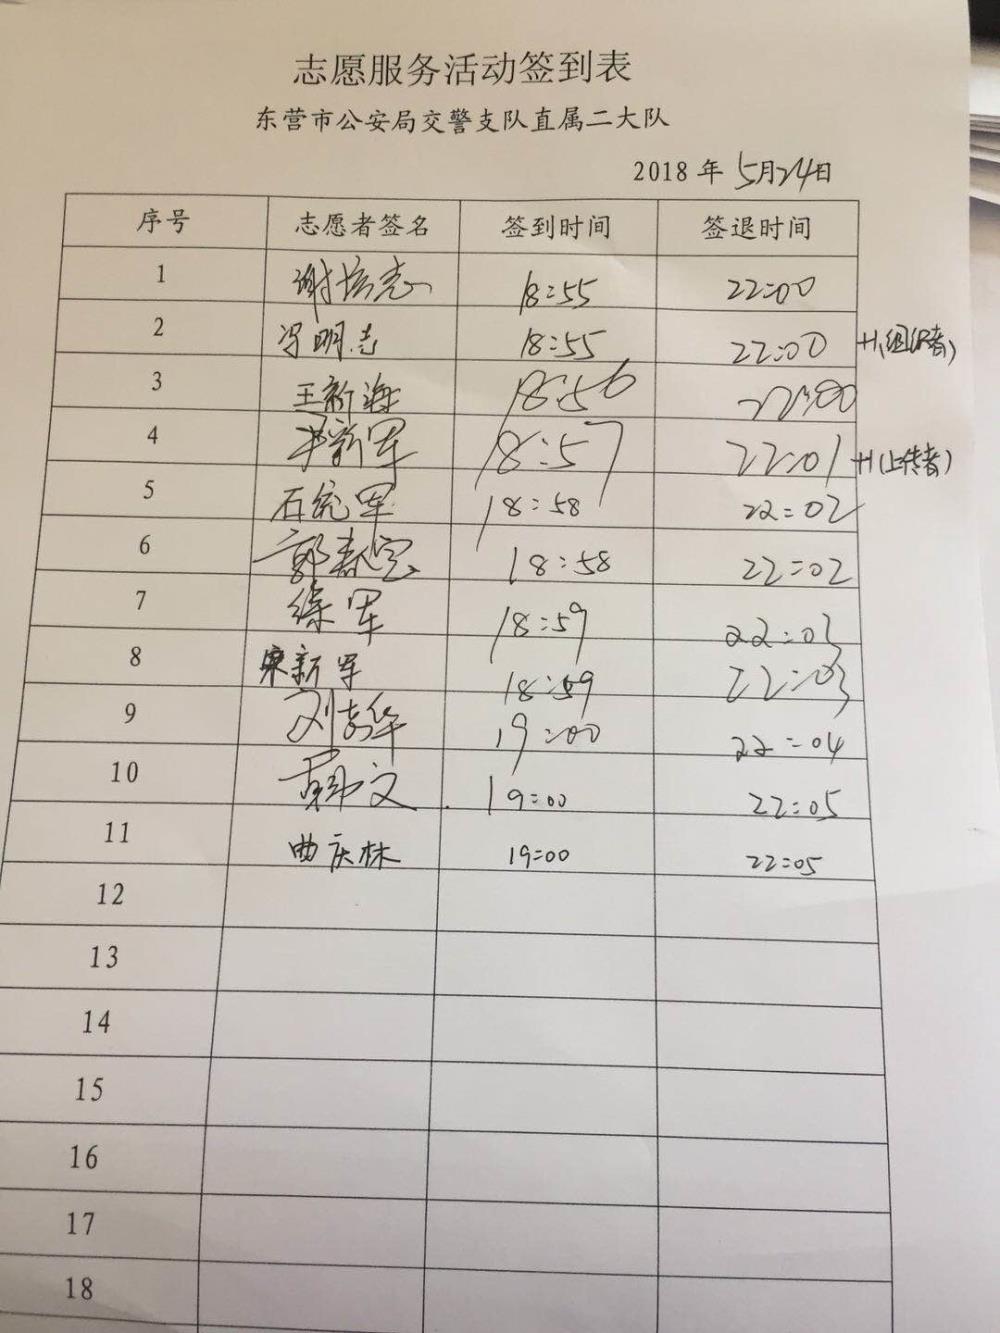 志愿服务活动签到表
东营市公安局交警支队直属二大队
2018 年 5月24日
序号 志愿者签名 签到时间 签退时间
1 谢培志 18:55 22:00
2 冯明志 18:55 22:00 +1(组织者)
3 王新海 18:56 22:00
4 新军 18:57 22:01 +1(上传者)
5 石统军 18:58 22:02
6 郭春宝 18:58 22:02
7 徐军 18:59 22:03
8 宋新军 18:59 22:03
9 刘志华 19:00 22:04
10 文 19:00 22:05
11 曲庆林 19:00 22:05
12
13
14
15
16
17
18